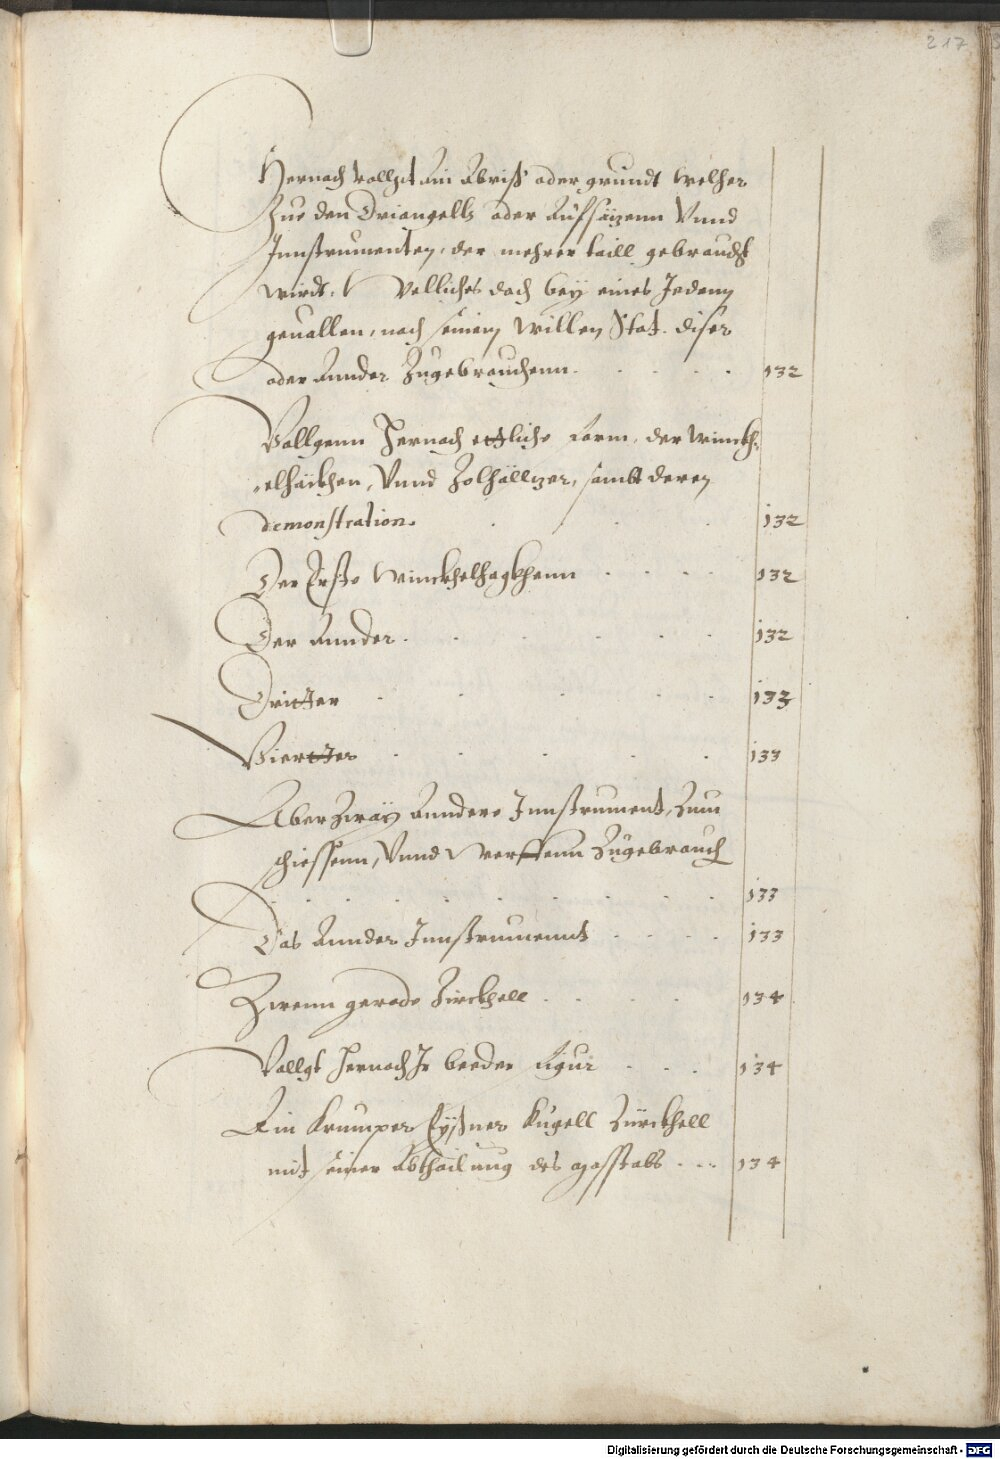 217
Hernach vollgt Ain Abriß oder grundt welher
Zue den Driangells oder Aufsäzenn Vnnd
Innstrumenten, der mehrer taill gebraucht
wirdt, Velliches doch bey eines Jeden
geuallen, nach seinem willen Stat. diser
oder Annder Zugebrauchenn. 132
Vollgenn hernach ettliche Form, der Winckh=
elhäckhen, Vnnd Zolhällzer, sambt deren
demonstration. 132
Der Erste Winckhelhagkhenn 132
Der Annder. 132
Dritter 133
Viertter 133
Aber Zway Anndere Innstrument, Zum
schiessenn, Vnnd Werffenn Zugebrauch
133
Das Annder Innstrumennt 133
Zwenn gerade Zirckhell 134
Vollgt hernach Ir beeder Figur 134
Ein Krumper Eyßner Kugell Zürckhell
mit seiner Abthailung des masstabs 134
Digitalisierung gefördert durch die Deutsche Forschungsgemeinschaft - DFG